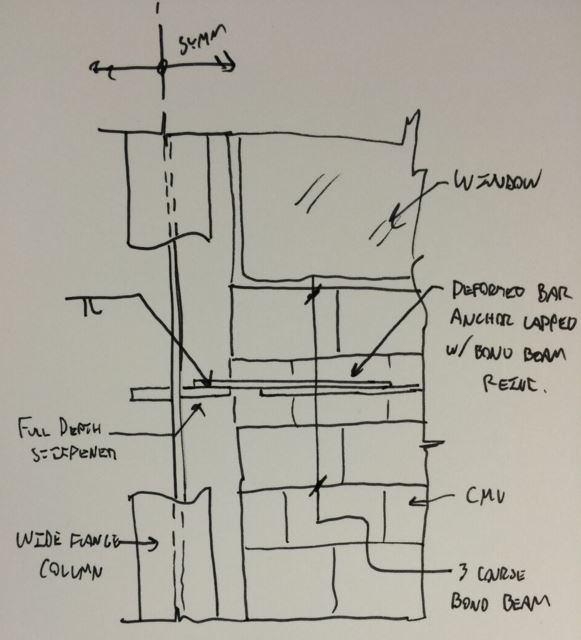 SYMM
WINDOW
DEFORMED BAR
ANCHOR LAPPED
W/ BOND BEAM
REINF.
FULL DEPTH
STIFFENER
CMU
WIDE FLANGE
COLUMN
3 COURSE
BOND BEAM